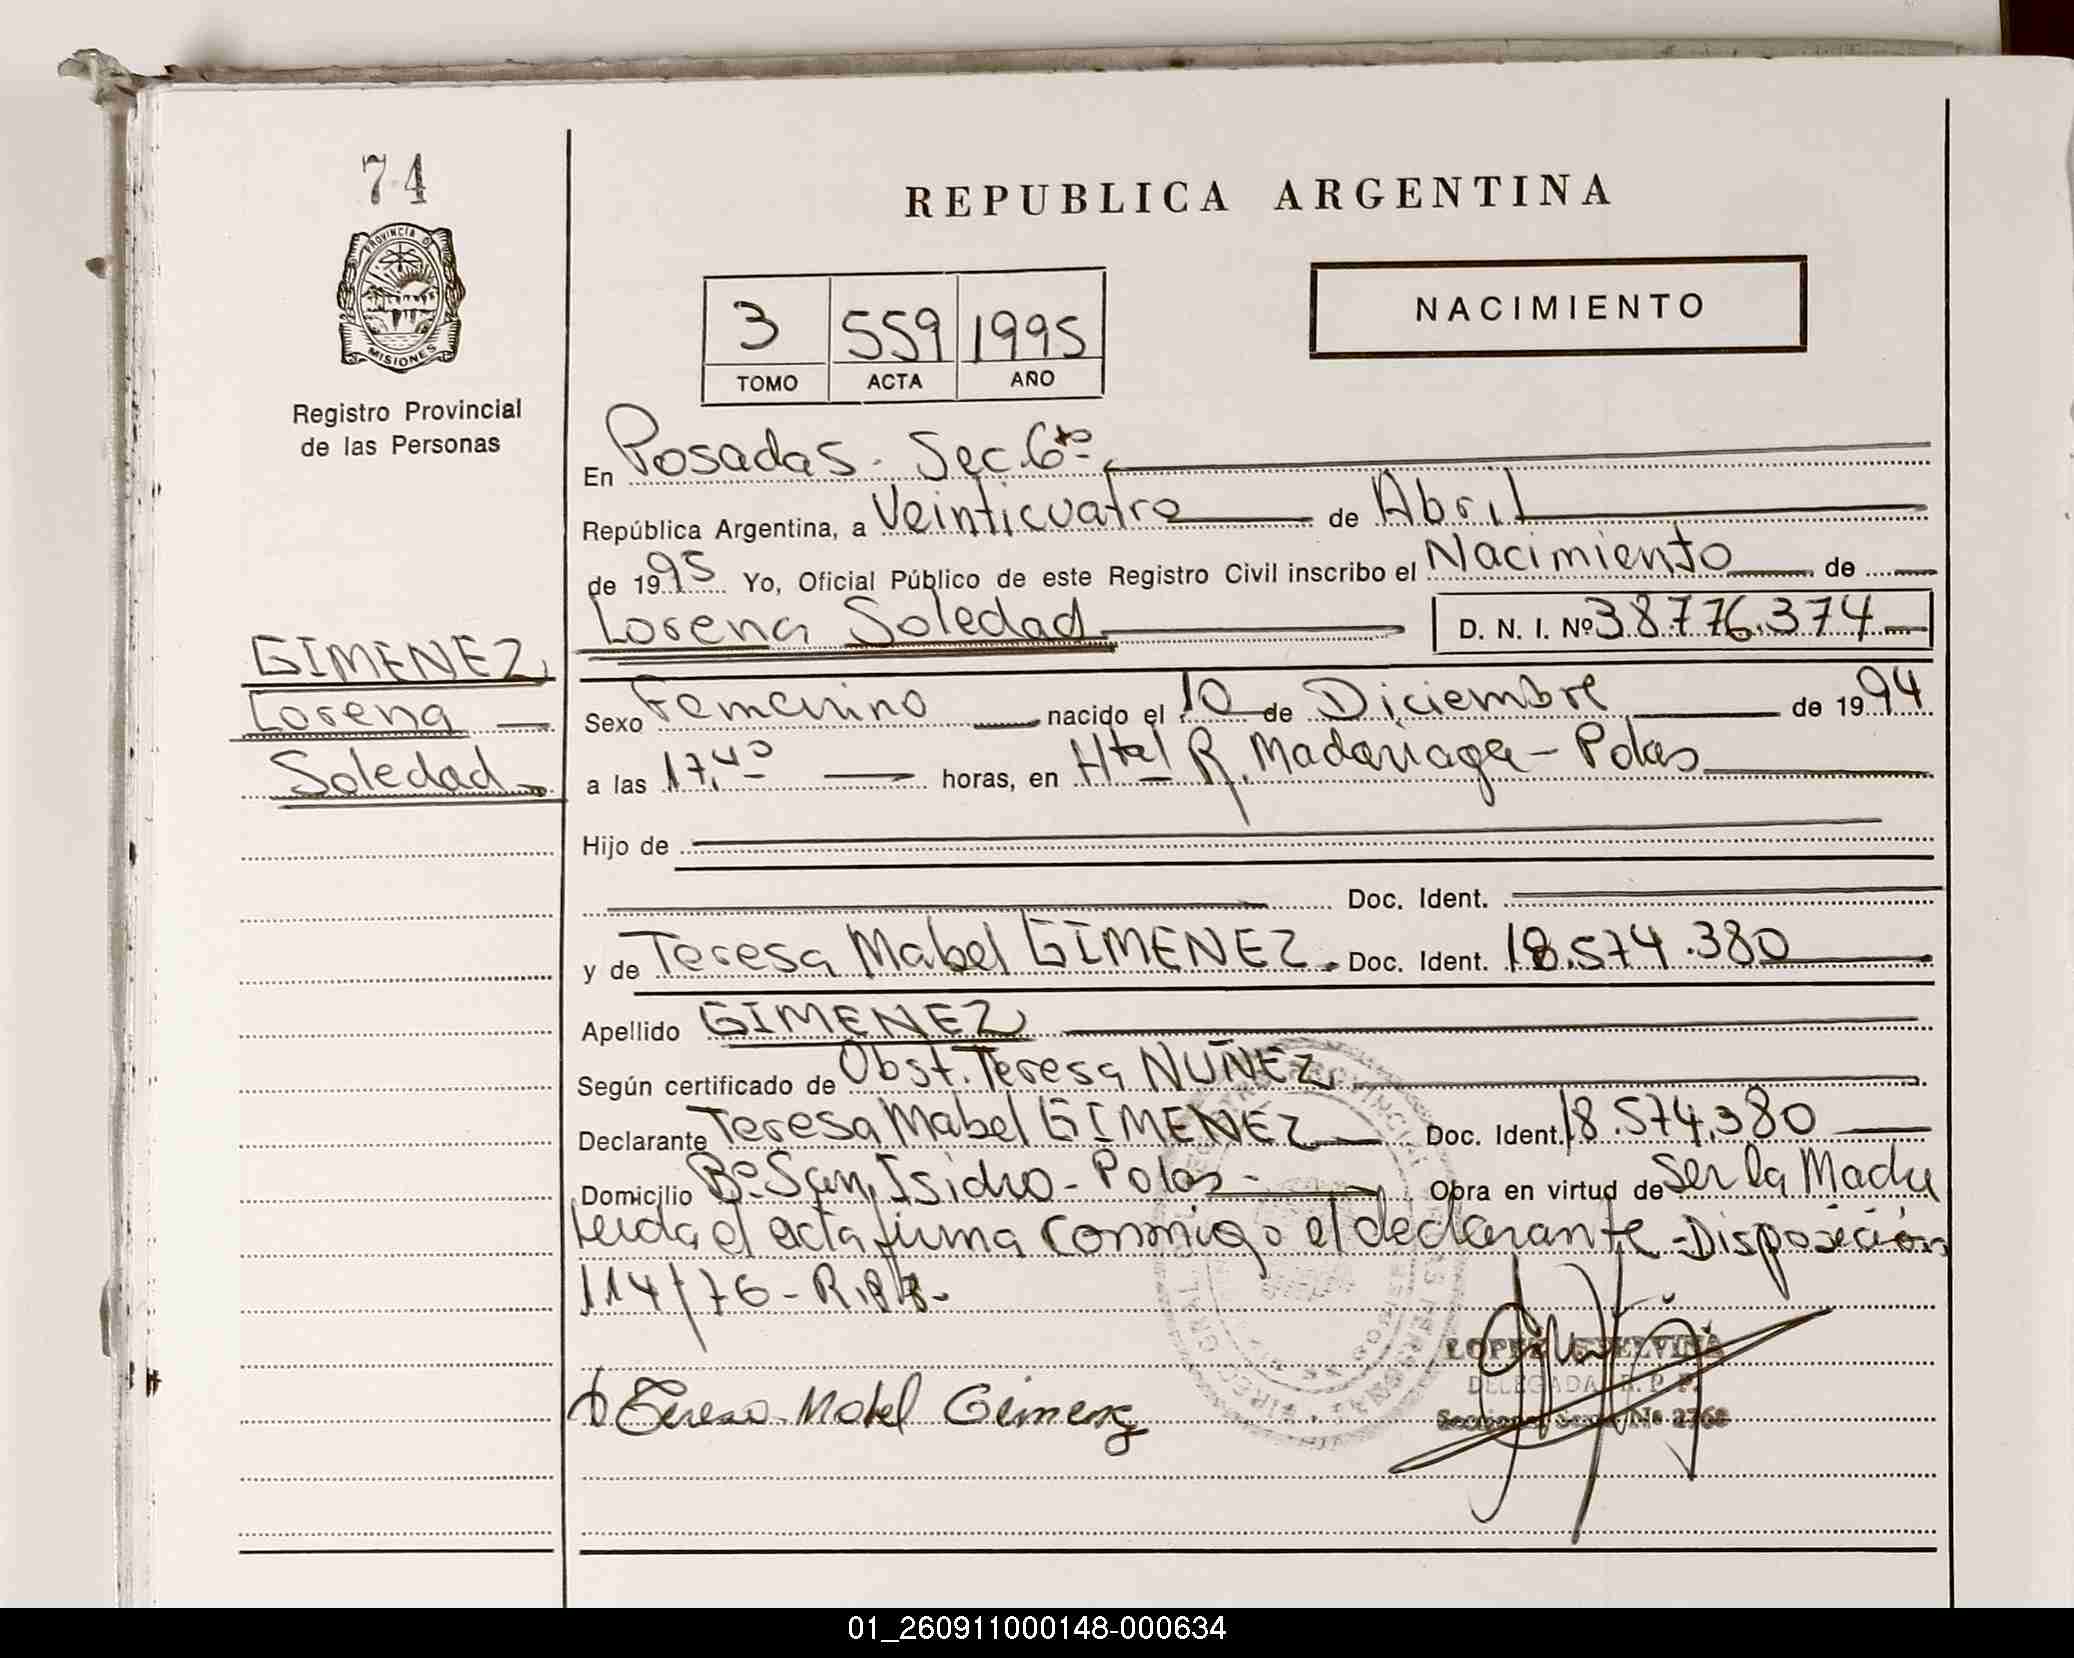 74
REPUBLICA ARGENTINA
PROVINCIA DE
MISIONES
Registro Provincial
de las Personas
3 559 1995
TOMO ACTA AÑO
NACIMIENTO
En Posadas. Sec. 6ta
República Argentina, a Veinticuatro de Abril
de 1995 Yo, Oficial Público de este Registro Civil inscribo el Nacimiento de
Lorena Soledad D. N. I. Nº 38.776.374
GIMENEZ
Lorena
Soledad
Sexo Femenino nacido el 10 de Diciembre de 1994
a las 17,40 horas, en Htal R. Madariaga - Pdas
Hijo de
Doc. Ident.
y de Teresa Mabel GIMENEZ. Doc. Ident. 18.574.380
Apellido GIMENEZ
Según certificado de Obst. Teresa NUÑEZ
Declarante Teresa Mabel GIMENEZ Doc. Ident. 18.574.380
Domicilio Bº San Isidro - Pdas - Obra en virtud de Ser la Madre
Leida el acta firma conmigo el declarante - Disposición
114/76 - R.P.P.
LOPEZ ELVINA
DELEGADA R. P. P.
Teresa Mabel Gimenez
Nº 2768
01_260911000148-000634